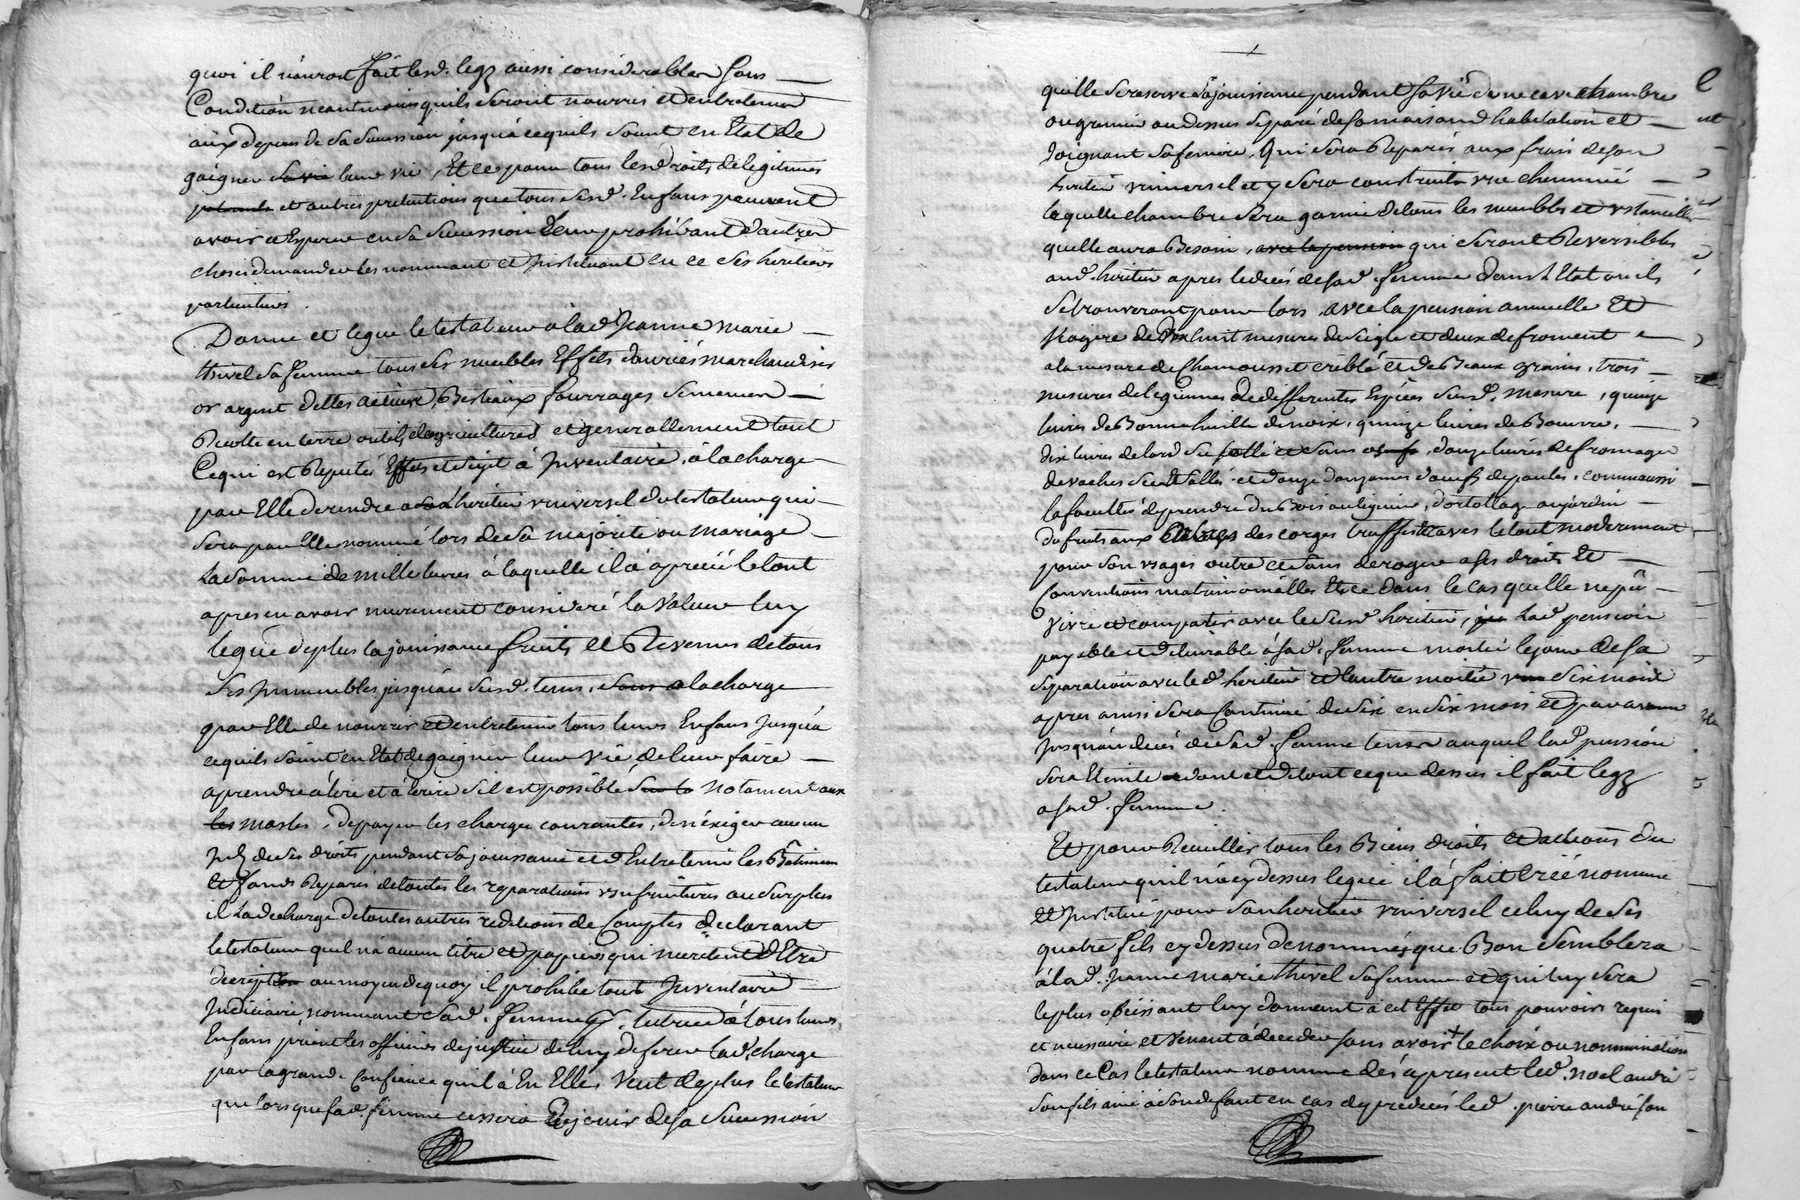 quoi il n'auroit fait lesd. legz aussi considerables sous
Condition neantmoins qu'ils seront nourris et entretenus
aux depens de sa succession jusqu'a ce qu'ils soient en Etat de
gaigner sa vie leur vie, Et ce pour tous les droits de legitimes
et autres pretentions que tous sesd. Enfans peuvent
avoir et Esperer en sa succession leur prohibant d'autres
choses demander les nommant et Instituant en ce ses heritiers
particuliers.
Donne et legue le testateur a lad. Jeanne marie
thivel sa femme tous ses meubles Effets danrées marchandises
or argent dettes actives Bestiaux fourrages semences
Recolte en terre outils d'agricultures et generallement tout
Ce qui est Reputé Effets et sujet à Inventaire, à la charge
par Elle de rendre a son heritier universel du testateur qui
sera par Elle nommé lors de sa majorité ou mariage
La somme de mille livres à laquelle il à aprecié le tout
apres en avoir murement consideré la valeur luy
legue de plus la jouissance fruits et Revenus de tous
ses Immeubles jusqu'au susd. tems, sous a la charge
par Elle de nourrir et entretenir tous leurs Enfans jusqu'a
ce qu'ils soient en Etat de gaigner leur vie, de leur faire
aprendre à lire et à Ecrire s'il est possible notament aux
les masles, de payer les charges courantes, de n'exiger aucun
de ses droits pendant sa jouissance et d'Entretenir les Bâtimens
et fonds Reparés de toutes les reparations usufruitieres au surplus
il La decharge de toutes autres redditions de Comptes declarant
le testateur qu'il n'a aucun titre et papiers qui meritent d'Etre
decrit au moyen de quoy il prohibe tout Inventaire
Judiciaire, nommant sad. femme tutrice à tous leurs
Enfans priant les officiers de justice de luy deferer lad. charge
par la grande Confiance qu'il à En Elle, Veut de plus le testateur
que lors que sad. femme cessera De jouir de sa succession
qu'elle se reserve la jouissance pendant sa vie d'une cave chambre
ou grenier au dessus separé de sa maison d'habitation et
Joignant sa feniere, Qui sera Reparés aux frais de son
heritier universel et y sera construite une cheminée
laquelle chambre sera garnie de tous les meubles et ustancilles
qu'elle aura Besoin, avec la pension qui seront Reversibles
aud. heritier apres le decés de sad. femme dans L'Etat ou ils
se trouveront pour lors, avec la pension annuelle et
Viagere de Dix huit mesures de seigle et deux de froment
a la mesure de Chamousset criblé et de Beaux grains, trois
mesures de legumes de differentes Especes susd. mesure, quinze
livres de Bonne huille de noix, quinze livres de Beurre,
dix livres de lard salé et sans os, douze livres de fromages
de vaches sec et sallés et douze douzaines d'oeufs de poules, comm'aussi
la faculté de prendre du Bois au ligier, d'ortollage au jardin
du fruits aux arbres des corges truffes et raves le tout moderement
pour son usages outre et sans deroger a ses droits et
Conventions matrimonialles Et ce dans le cas qu'elle ne pû
Vivre et compatir avec le susd. heritier, Lad. pension
payable et delivrable à sad. femme moitié le jour de sa
separation avec led. heritier et l'autre moitié six mois
apres ainsi sera Continué de six en six mois et par avance
jusqu'au decés de sad. femme tems auquel lad. pension
sera Eteinte et de tout ce que dessus il fait legz
a sad. femme.
Et pour Recuillir tous les Biens droits et actions du
testateur qu'il n'a cy dessus legué il à fait Créé nommé
et Institué pour son heritier universel celuy de ses
quatre fils cy dessus denommés que Bon semblera
à lad. Jeanne marie thivel sa femme et qui luy sera
le plus obéissant luy donnant à cet Effet tous pouvoirs requis
et necessaire et Venant à deceder sans avoir + le choix ou nommination
dans ce Cas le testateur nomme dés apresent led. noel andré
son fils ainé a son defaut en cas de predecés led. pierre andré son